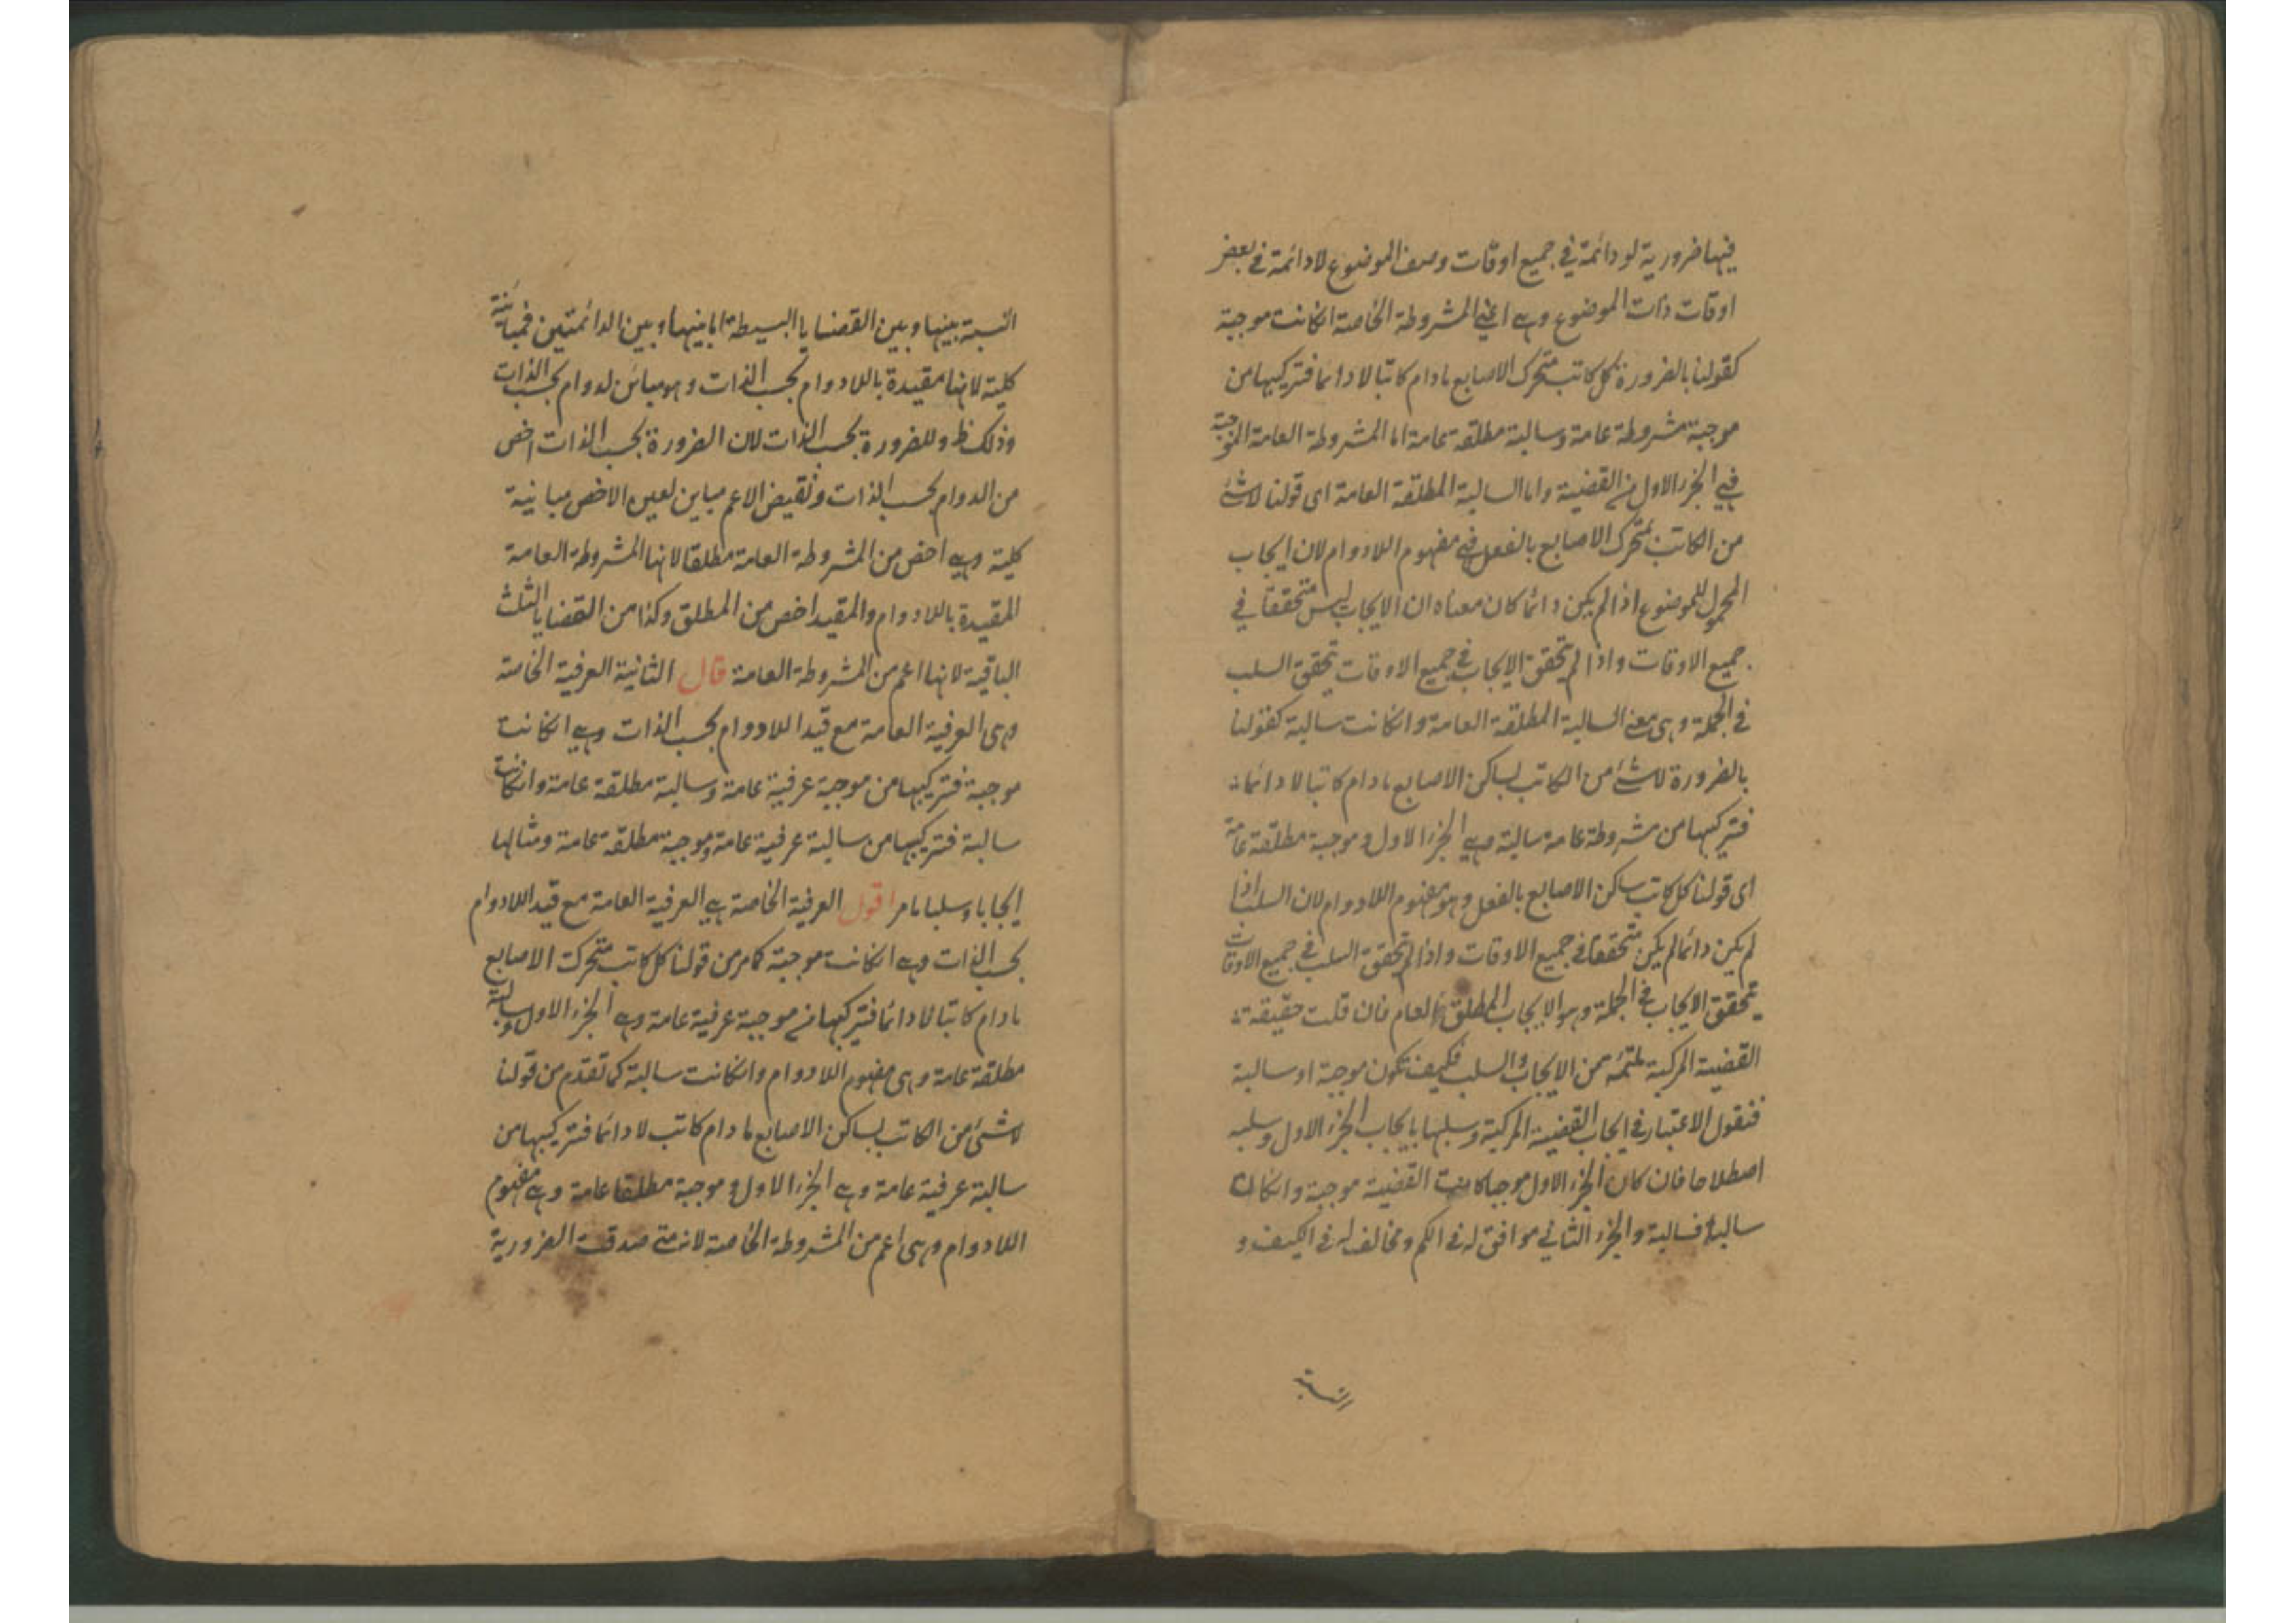 فيها ضرورية لو دائمة في جميع اوقات وصف الموضوع لا دائمة في بعض
اوقات ذات الموضوع وهي اعني المشروطة الخاصة انكانت موجبة
كقولنا بالضرورة كل كاتب متحرك الاصابع مادام كاتبا لا دائما فتركيبها من
موجبة مشروطة عامة وسالبة مطلقة عامة اما المشروطة العامة الموجبة
فهي الجزء الاول من القضية واما السالبة المطلقة العامة اى قولنا لا شئ
من الكاتب بمتحرك الاصابع بالفعل فهي مفهوم اللادوام لان ايجاب
المحمول للموضوع اذا لم يكن دائما كان معناه ان الايجاب ليس متحققا في
جميع الاوقات واذا لم يتحقق الايجاب في جميع الاوقات يتحقق السلب
في الجملة وهى معنى السالبة المطلقة العامة وانكانت سالبة كقولنا
بالضرورة لا شئ من الكاتب بساكن الاصابع مادام كاتبا لا دائما
فتركيبها من مشروطة عامة سالبة وهي الجزء الاول وموجبة مطلقة عامة
اى قولنا كل كاتب ساكن الاصابع بالفعل وهو مفهوم اللادوام لان السلب اذا
لم يكن دائما لم يكن متحققا في جميع الاوقات واذا لم يتحقق السلب في جميع الاوقات
يتحقق الايجاب في الجملة وهو الايجاب المطلق العام فان قلت حقيقة
القضية المركبة ملتئمة من الايجاب والسلب فكيف تكون موجبة او سالبة
فنقول الاعتبار في ايجاب القضية المركبة وسلبها بايجاب الجزء الاول وسلبه
اصطلاحا فان كان الجزء الاول موجبا كانت القضية موجبة وانكان
سالبا فسالبة والجزء الثاني موافق له في الكم ومخالف له في الكيف و
النسبة بينها وبين القضايا البسيطة اما بينها وبين الدائمتين فمباينة
كلية لانها مقيدة باللادوام بحسب الذات وهو مباين لدوام بحسب الذات
وذلك ظ وللضرورة بحسب الذات لان الضرورة بحسب الذات اخص
من الدوام بحسب الذات ونقيض الاعم مباين لعين الاخص مباينة
كلية وهي اخص من المشروطة العامة مطلقا لانها المشروطة العامة
المقيدة باللادوام والمقيد اخص من المطلق وكذا من القضايا الثلث
الباقية لانها اعم من المشروطة العامة قال الثانية العرفية الخاصة
وهى العرفية العامة مع قيد اللادوام بحسب الذات وهي انكانت
موجبة فتركيبها من موجبة عرفية عامة وسالبة مطلقة عامة وانكانت
سالبة فتركيبها من سالبة عرفية عامة وموجبة مطلقة عامة ومثالها
ايجابا وسلبا مامر اقول العرفية الخاصة هي العرفية العامة مع قيد اللادوام
بحسب الذات وهي انكانت موجبة كمامر من قولنا كل كاتب متحرك الاصابع
مادام كاتبا لا دائما فتركيبها من موجبة عرفية عامة وهي الجزء الاول وسالبة
مطلقة عامة وهى مفهوم اللادوام وانكانت سالبة كما تقدم من قولنا
لا شئ من الكاتب بساكن الاصابع مادام كاتب لا دائما فتركيبها من
سالبة عرفية عامة وهي الجزء الاول وموجبة مطلقا عامة وهي مفهوم
اللادوام وهى اعم من المشروطة الخاصة لانه متى صدقت الضرورية